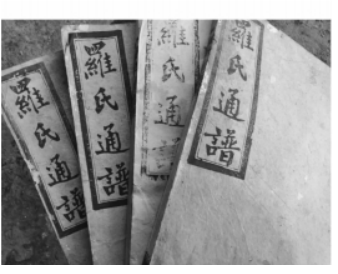 羅氏通譜
羅氏通譜
羅氏通譜
羅氏通譜